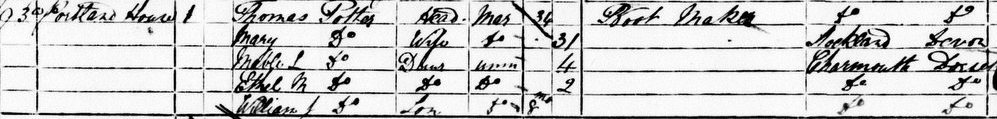 23 Do Portland House 1 Thomas Potter Head Mar 34 Boot Maker Do Do
Mary Do Wife Do 31 Stockland Devon
Mable L Do Daur unm 4 Charmouth Dorset
Ethel M Do Do Do 2 Do Do
William J Do Son Do 8 mo Do Do